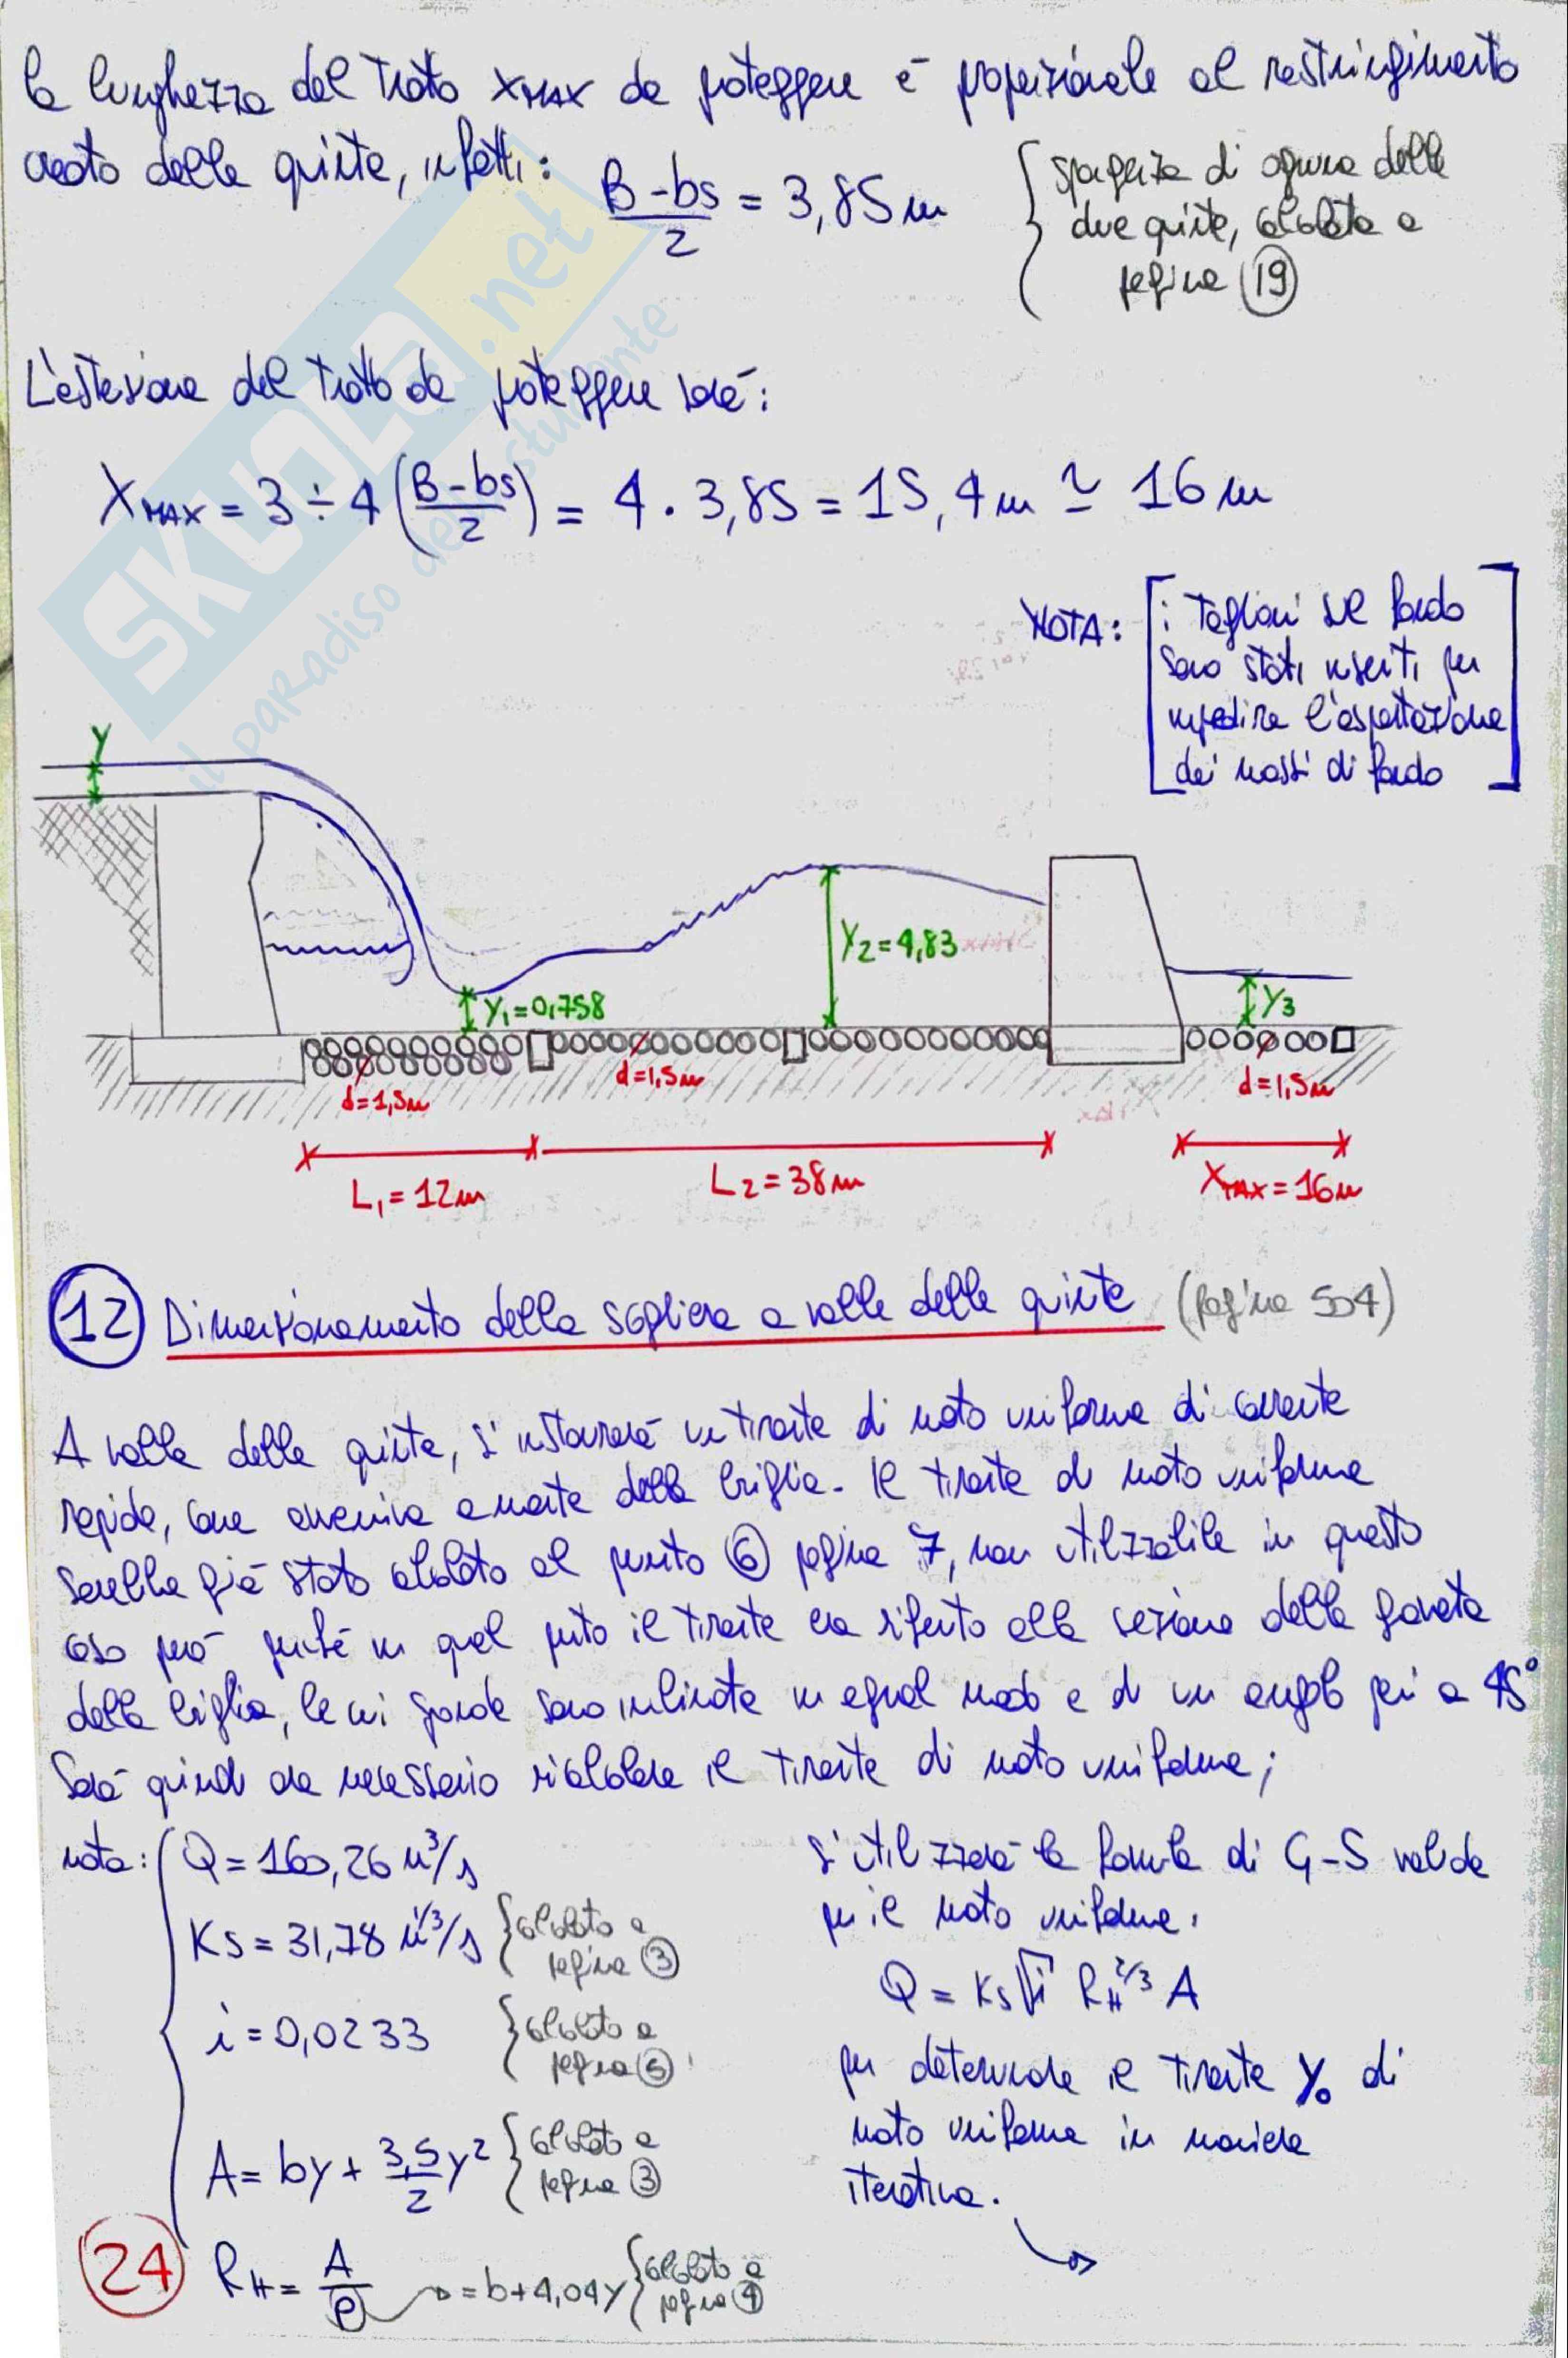 la lunghezza del tratto XMAX da proteggere è proporzionale al restringimento
creato dalle quinte, infatti: B-bs/2 = 3,85 m
{sporgenza di ognuna delle
due quinte, calcolata a
pagina (19)
L'estensione del tratto da proteggere sarà:
XMAX = 3÷4 (B-bs/2) = 4 · 3,85 = 15,4 m ≃ 16 m
NOTA: [i taglioni sul fondo
sono stati inseriti per
impedire l'asportazione
dei massi di fondo]
Y
Y2 = 4,83
Y1 = 0,758
Y3
d = 1,5m
d = 1,5m
d = 1,5m
L1 = 12m
L2 = 38m
XMAX = 16m
(12) Dimensionamento della scogliera a valle delle quinte (pagina 504)
A valle delle quinte, s'instaurerà un tirante di moto uniforme di corrente
rapida, come avveniva a monte della briglia. Il tirante di moto uniforme
sarebbe già stato calcolato al punto (6) pagina 7, non utilizzabile in questo
caso però perché in quel punto il tirante era riferito alla sezione della gaveta
della briglia, le cui sponde sono inclinate in egual modo e di un angolo pari a 45°
Sarà quindi ora necessario ricalcolare il tirante di moto uniforme;
nota: {Q = 160,26 m³/s
Ks = 31,78 m^1/3/s {calcolato a
pagina (3)
i = 0,0233 {calcolato a
pagina (5)
A = by + 3,5/2 y² {calcolato a
pagina (3)
RH = A/P → = b+4,04y {calcolato a
pagina (4)
s'utilizzerà la formula di G-S valida
per il moto uniforme.
Q = Ks√i RH^2/3 A
per determinare il tirante Y0 di
moto uniforme in maniera
iterativa.
(24)
SKUOLA.net
il paradiso dello studente